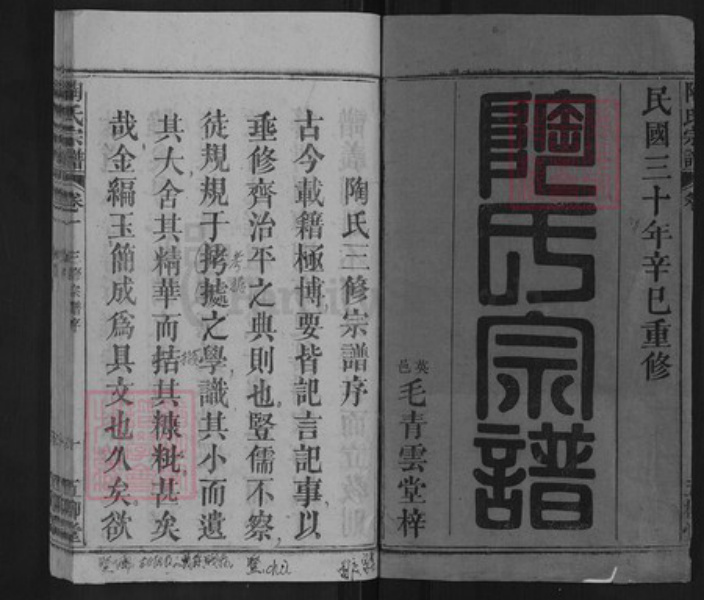 民國三十年辛巳重修
陶氏宗譜
英邑毛青雲堂梓
陶氏宗譜
陶氏三修宗譜序
古今載籍極博要皆記言記事以
垂修齊治平之典則也豎儒不察
徒規規于拷摭之學識其小而遺
其大舍其精華而拮其糠粃甚矣
哉金編玉簡成爲具文也久矣欲
陶氏宗譜 卷一 三修宗譜序 一 五柳堂